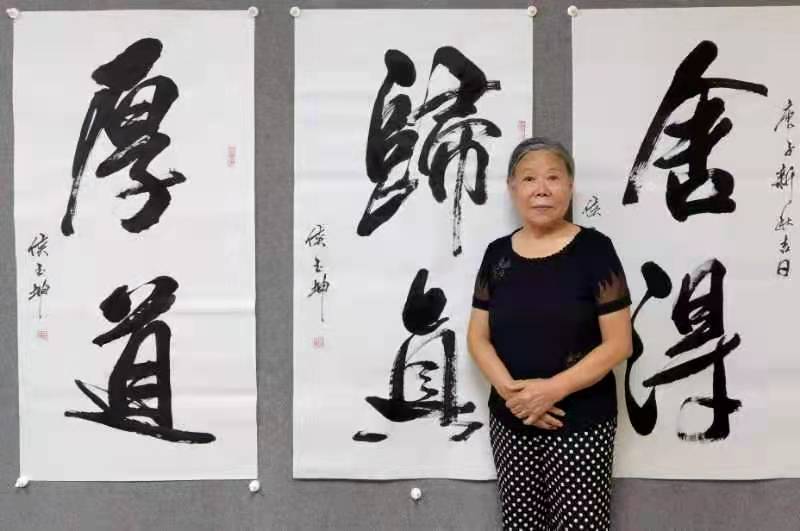 厚道
侯玉坤
歸真
侯玉坤
庚子新秋吉日
舍得
侯